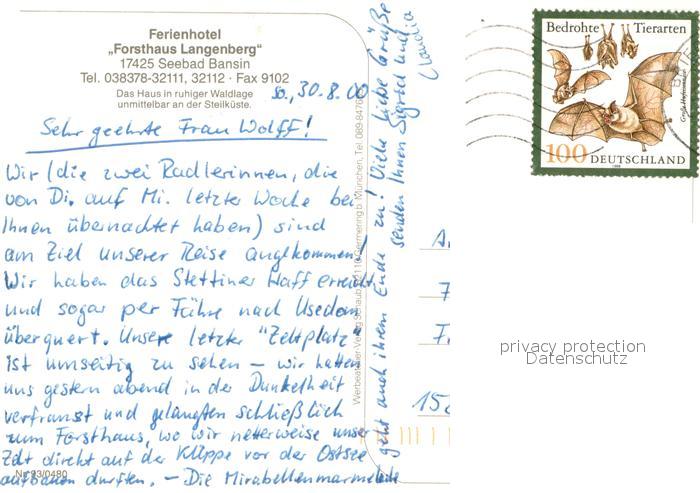 Ferienhotel
„Forsthaus Langenberg“
17425 Seebad Bansin
Tel. 038378-32111, 32112 · Fax 9102
Das Haus in ruhiger Waldlage
unmittelbar an der Steilküste.
So., 30.8.00
Sehr geehrte Frau Wolff!
Wir (die zwei Radlerinnen, die
von Di. auf Mi. letzter Woche bei
Ihnen übernachtet haben) sind
am Ziel unserer Reise angekommen!
Wir haben das Stettiner Haff erreicht
und sogar per Fähre nach Usedom
überquert. Unsere letzter "Zeltplatz"
ist umseitig zu sehen – wir hatten
uns gestern abend in der Dunkelheit
verfranst und gelangten schließlich
zum Forsthaus, wo wir netterweise unser
Zelt direkt auf der Klippe vor der Ostsee
aufbauen durften. – Die Mirabellenmarmelade
geht auch ihrem Ende zu! Viele liebe Grüße
senden Ihnen Sigrid und
Claudia
Nr. 93/0480
Bedrohte Tierarten
100 DEUTSCHLAND
privacy protection
Datenschutz